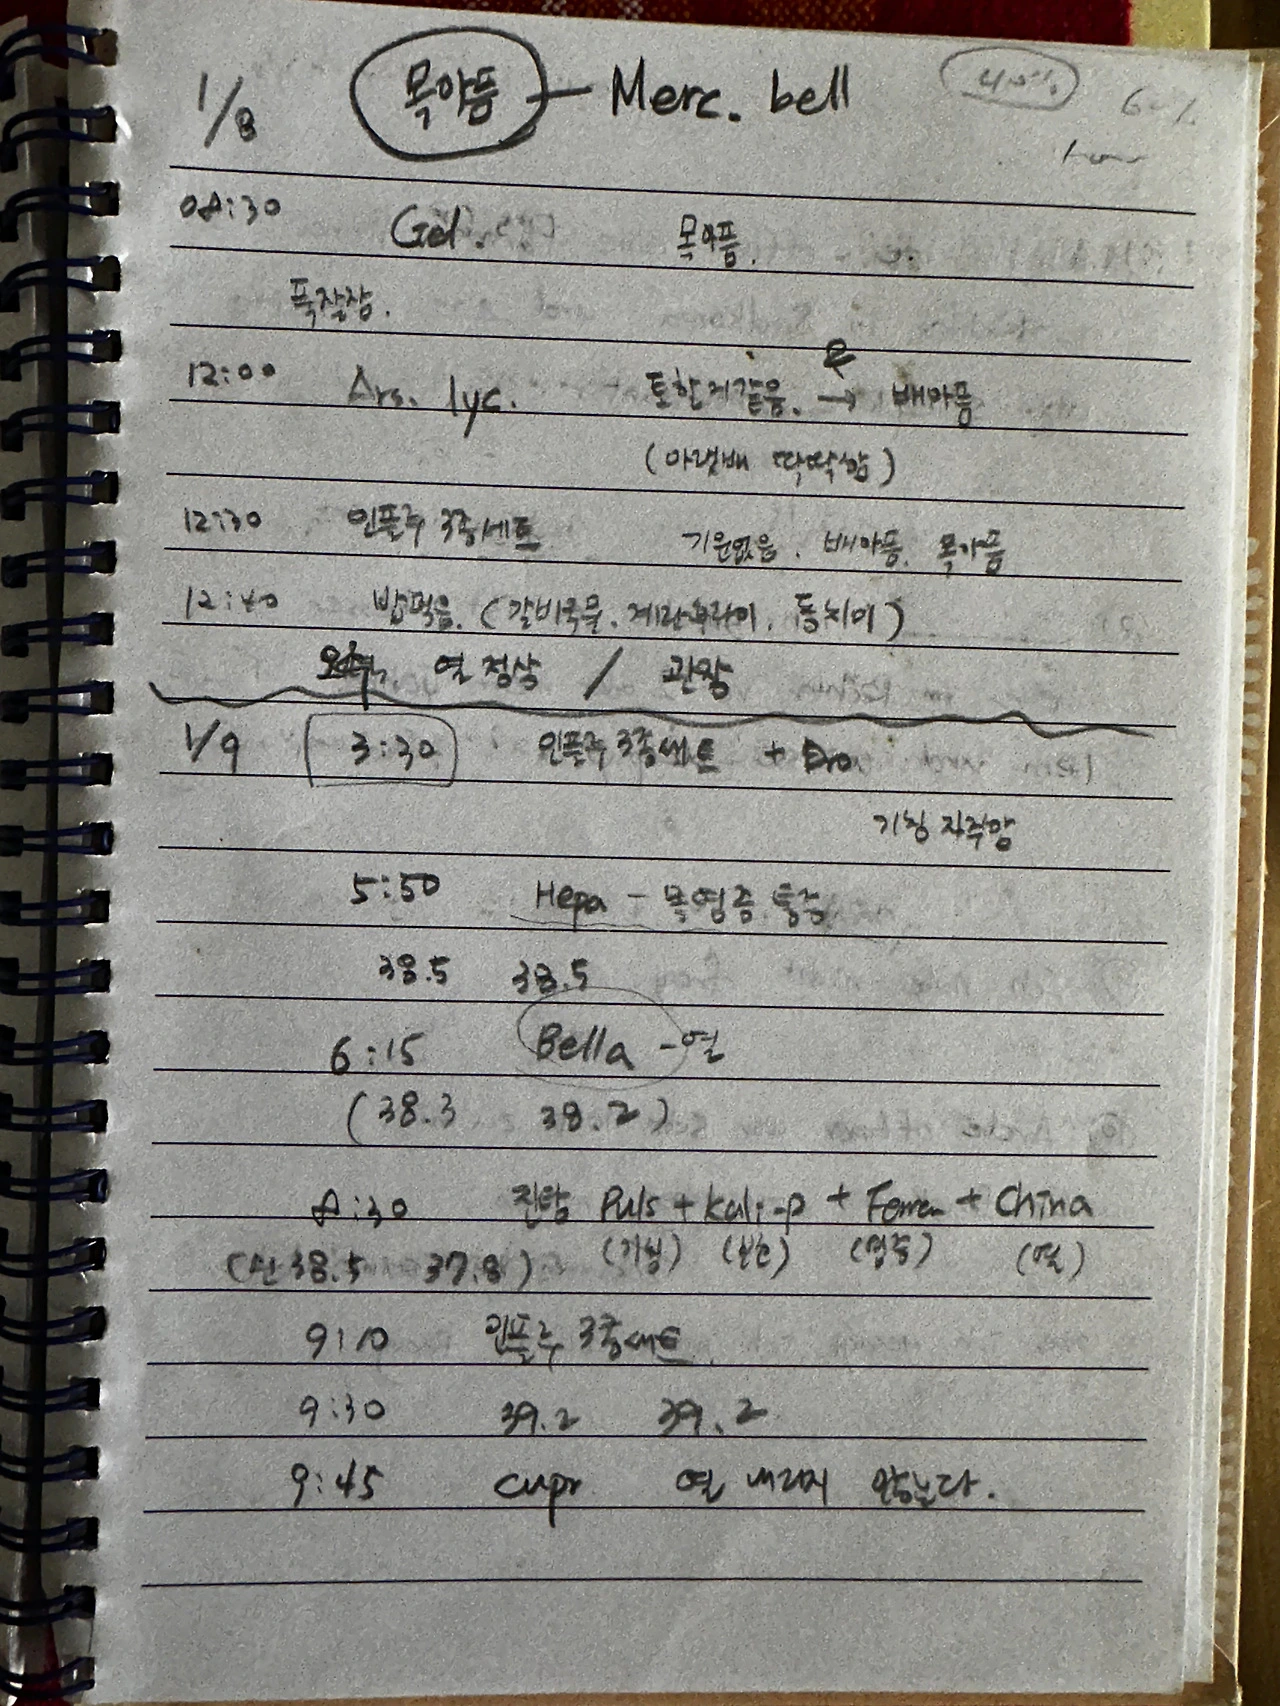 1/8 목아픔 - Merc. bell
08:30 Gel. 목아픔.
푹잘잠.
12:00 Ars. lyc. 토할거같음. → 배아픔
(아랫배 딱딱함)
12:30 인플루 3종세트 기운없음. 배아픔. 목아픔
12:40 밥먹음. (갈비국물. 계란후라이. 동치미)
오후. 열 정상 / 관장
1/9 3:30 인플루 3종세트 + Dro
기침 자주함
5:50 Hepa - 목염증 통증
38.5 38.5
6:15 Bella - 열
(38.3 38.2)
8:30 진탕 Puls + Kali-p + Ferrum + China
(기침) (염증) (열)
38.5 37.8)
9:10 인플루 3종세트
9:30 39.2 39.2
9:45 cupr 열 내리지 않는다.